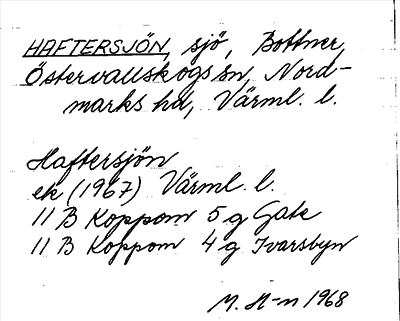 HAFTERSJÖN, sjö, Bottner,
Östervallskogs sn, Nord-
marks hd, Värml. l.
Haftersjön
ek (1967) Värml. l.
11 B Koppom 5 g Gate
11 B Koppom 4 g Ivarsbyn
M. H-n 1968